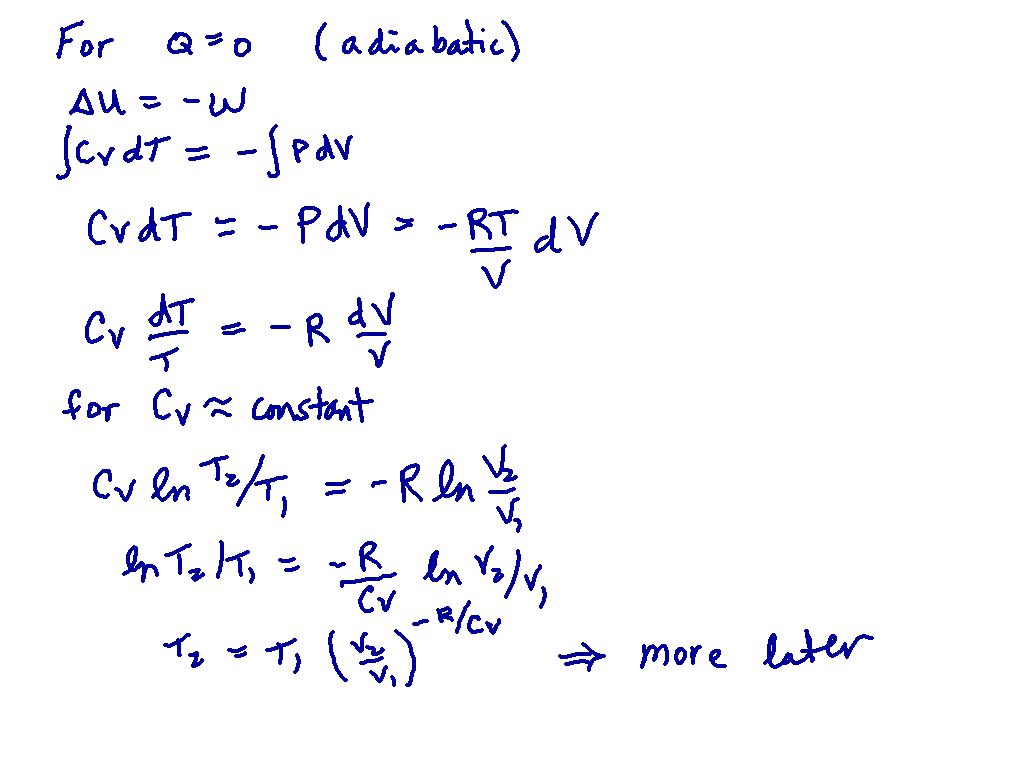 For Q = 0 (adiabatic)
ΔU = -W
∫CvdT = -∫PdV
CvdT = -PdV = -RT/V dV
Cv dT/T = -R dV/V
for Cv ≈ constant
Cv ln T2/T1 = -R ln V2/V1
ln T2/T1 = -R/Cv ln V2/V1
T2 = T1 (V2/V1)^-R/Cv ⇒ more later